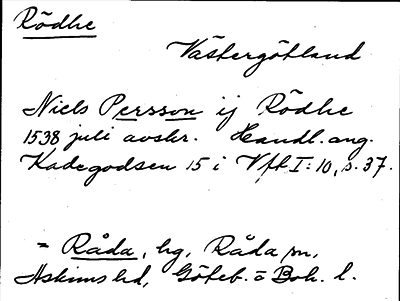 Rödhe
Västergötland
Niels Persson ij Rödhe
1538 juli avskr. Handl. ang.
Kadegodsen 15 i Vft I:10, s. 37.
= Råda, hg, Råda sn,
Askims hd, Göteb. o Boh. l.